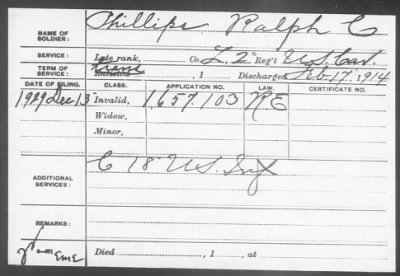 NAME OF SOLDIER: Phillips Ralph C
SERVICE: Late rank, Co. L 2" Reg't U.S. Cav.
TERM OF SERVICE: Enlisted , 1 Discharged Feb. 17, 1914
DATE OF FILING. CLASS. APPLICATION NO. LAW. CERTIFICATE NO.
1929 Dec 13 Invalid, 1657.103
Widow,
Minor,
ADDITIONAL SERVICES: C 18" U.S. Inf
REMARKS:
EME Died , 1 , at